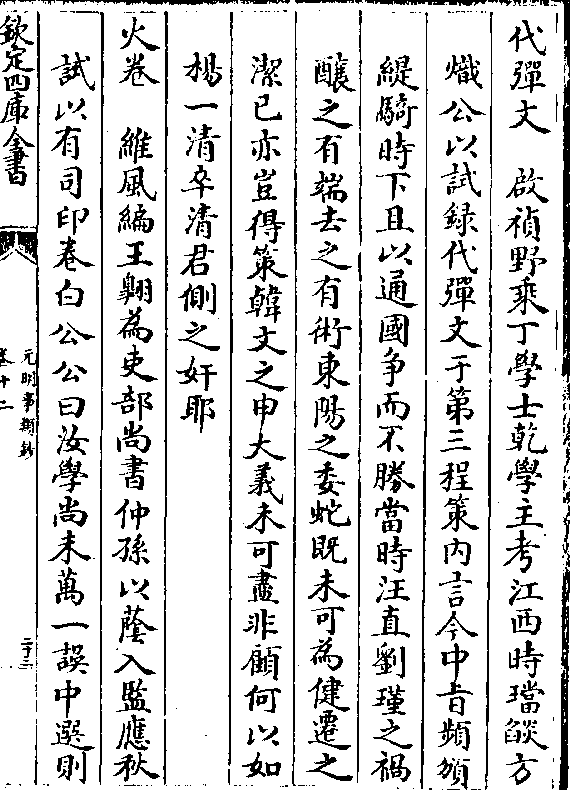 代彈文　啟禎野乘丁學士乾學主考江西時璫燄方
熾公以試録代彈文于第三程策内言今中㫖頻頒
緹騎時下且以通國争而不勝當時汪直劉瑾之禍
釀之有端去之有術東陽之委蛇既未可為健遷之
潔已亦豈得策韓文之申大義未可盡非顧何以如
楊一清卒清君側之奸耶
火卷　維風編王翺為吏部尚書仲孫以蔭入監應秋
試以有司印卷白公公曰汝學尚未萬一誤中選則
欽定四庫全書
元明事類鈔
卷十二
二十三